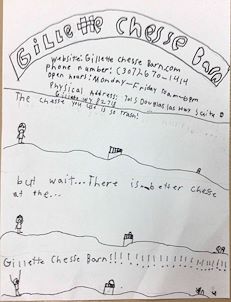 Gillette Chesse Barn
website: Gillette Chesse Barn.com
phone number: (307)-670-1414
open hours: Monday-Friday 10am-6pm
Physical Address: 701 S Douglas las Hwy Suite D
Gillette WY 82718
The chesse you use is so trash!
but wait...There is better chese
at the...
Gillette Chesse Barn!!!!!!!!!!!!!!!!!